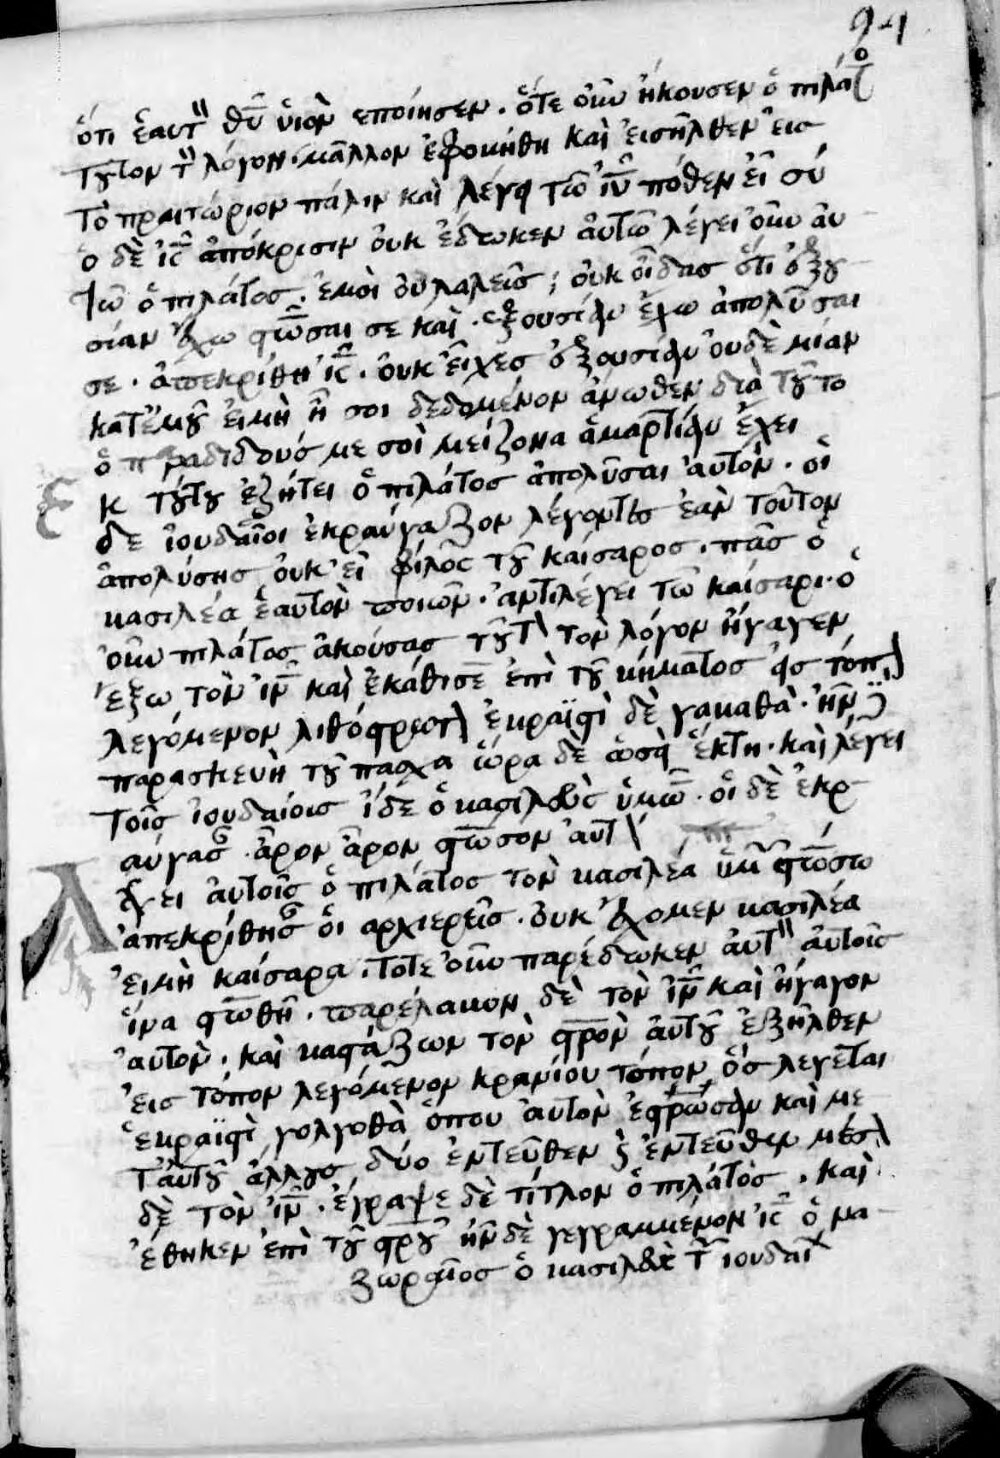 94
ὅτι ἑαυτ̀ θῦ ὑιὸν εποίησεν. ὅτε οὖν ἤκουσεν ὁ πιλάτο
τοῦτον τ̀ λόγον. μᾶλλον ἐφοβήθη καὶ εἰσῆλθεν εἰς
τὸ πραιτώριον πάλιν καὶ λέγει τῶ ἰῦ πόθεν εἶ σύ
ὁ δὲ ἰς̄ ἀπόκρισιν οὐκ ἔδωκεν αὐτῶ λέγει οὖν αὐ
τῶ ὁ πιλάτος. ἐμοὶ οὐ λαλεῖς; οὐκ οἶδας ὅτι ἐξου
σίαν ἔχω στῶσαι σε καὶ. ἐξουσίαν ἔχω ἀπολῦσαι
σε. ἀπεκρίθη ἰς̄. οὐκ εἶχες ἐξουσίαν οὐδὲ μίαν
κατ᾽ἐμοῦ εἰμὴ ἦ σοι δεδομένον ἄνωθεν διὰ τοῦτο
ὁ παραδιδούς με σοὶ μείζονα ἁμαρτίαν ἔχει
Εκ τούτου ἐζήτει ὁ πιλάτος ἀπολῦσαι αὐτὸν. οἱ
δε ἰουδαῖοι ἐκραύγαζον λέγοντες ἐὰν τοῦτον
ἀπολύσης οὐκ εἶ φίλος τοῦ καίσαρος. πᾶς ὁ
βασιλέα ἑαυτὸν ποιῶν. ἀντιλέγει τῶ καίσαρι. ὁ
οὖν πιλάτος ἀκούσας τοῦτ\ τὸν λόγον ἤγαγεν
ἔξω τὸν ἰν̄ καὶ ἐκάθισε ἐπὶ τοῦ βήματος εἰς τόπ\
λεγόμενον λιθόστρωτ\ ἑβραϊστὶ δὲ γαβαθὰ. ἦν
παρασκευὴ τοῦ πασχα ὥρα δὲ ὡσεὶ ἕκτη. καὶ λέγει
τοῖς ἰουδαίοις ἴδε ὁ βασιλεὺς ὑμῶ. οἱ δὲ ἐκρ
αύγασ. ἆρον ἆρον στῶσον αὐτ\
Λέγει αὐτοῖς ὁ πιλάτος τὸν βασιλέα ὑμ στῶσω
ἀπεκρίθησ οἱ αρχιερεῖς. οὐκ ἔχομεν βασιλέα
εἰμὴ καίσαρα. τότε οὖν παρέδωκεν αὐτ̀ αὐτοῖς
ἵνα στωθῆ. παρέλαβον δὲ τὸν ἰν̄ καὶ ἤγαγον
αὐτὸν. καὶ βαστάζων τὸν στρον αὐτοῦ ἐξῆλθεν
εἰς τόπον λεγόμενον κρανίου τόπον ὃς λεγεται
ἑβραϊστὶ γολγοθὰ ὅπου αὐτὸν ἐστρωσαν καὶ με
τ᾽αὐτοῦ ἄλλους δύο ἐντεῦθεν καὶ ἐντεῦθεν μέσ\
δὲ τὸν ἰν̄. ἔγραψε δὲ τίτλον ὁ πιλάτος. καὶ
ἔθηκεν ἐπὶ τοῦ στρου ἦν δὲ γεγραμμένον ἰς̄ ὁ να
ζωραῖος ὁ βασιλεὺς τ ἰουδαί